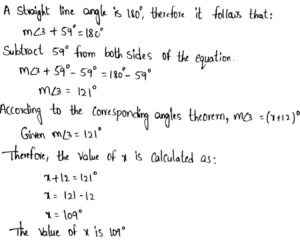 A straight line angle is 180°, therefore it follows that:
m∠3 + 59° = 180°
Subtract 59° from both sides of the equation.
m∠3 + 59° - 59° = 180° - 59°
m∠3 = 121°
According to the corresponding angles theorem, m∠3 = (x+12)°
Given m∠3 = 121°
Therefore, the value of x is calculated as:
x + 12 = 121°
x = 121 - 12
x = 109°
The value of x is 109°